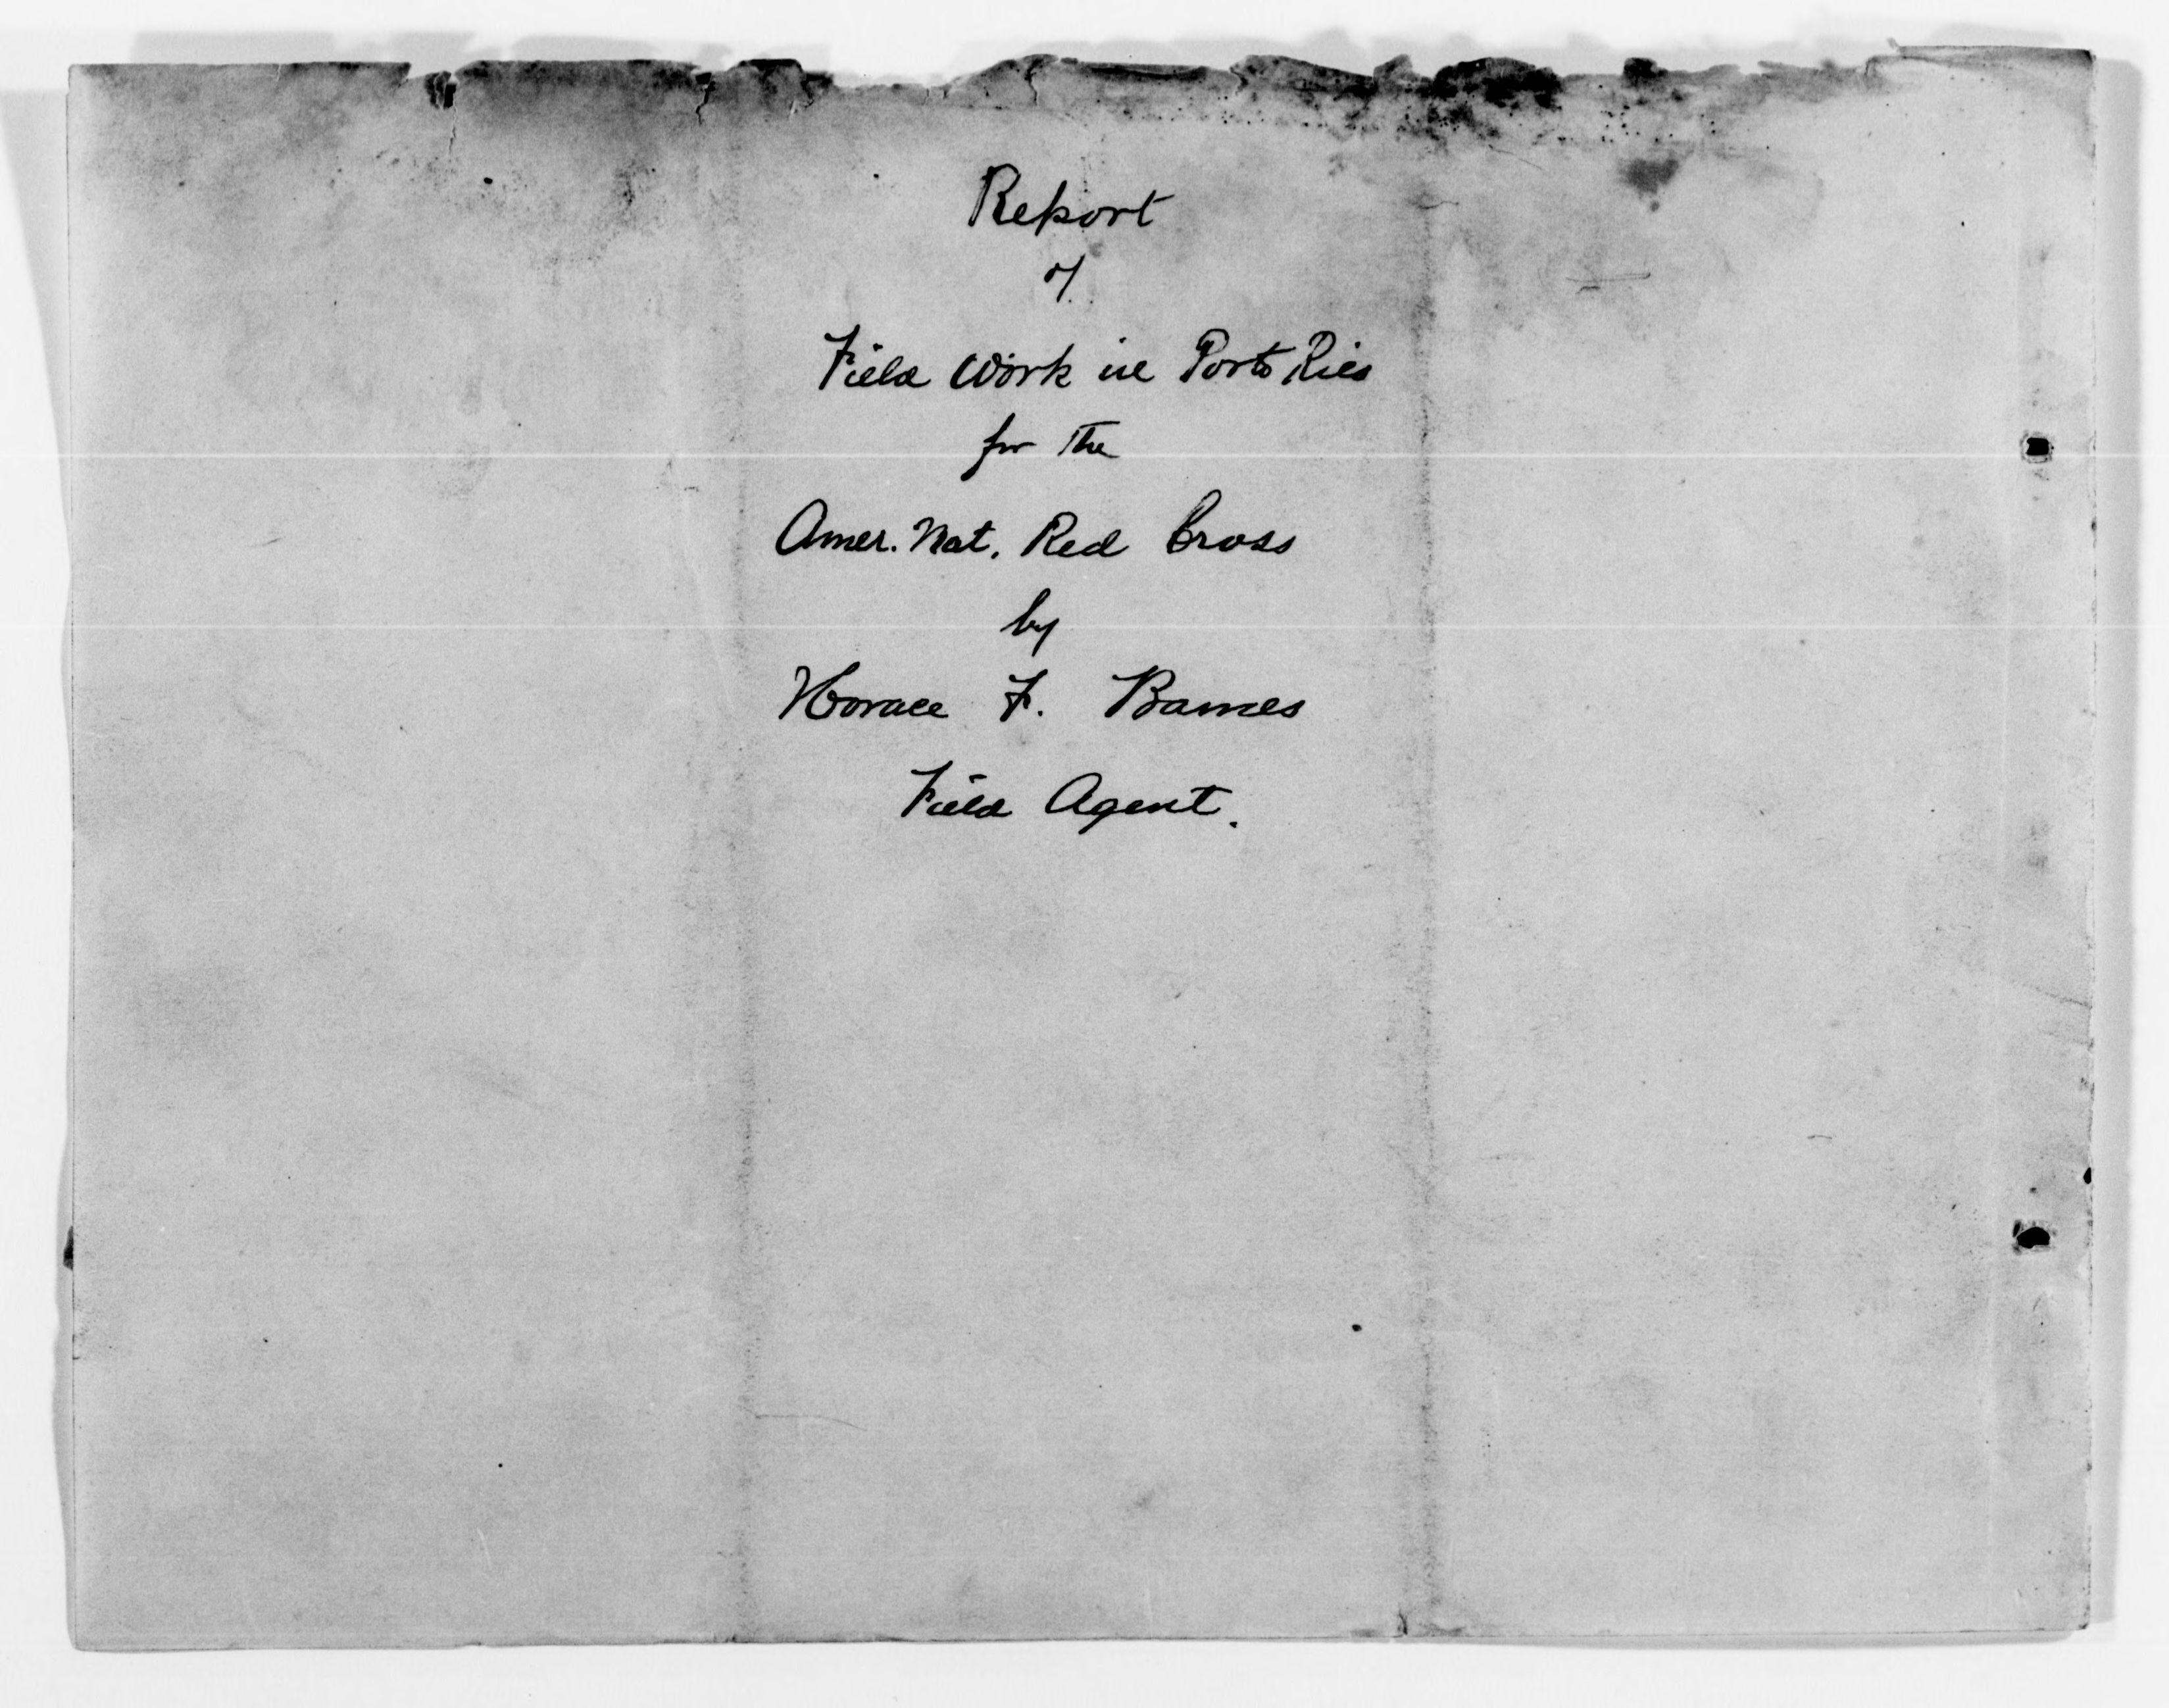 Report
of
Field Work in Porto Rico
for the
Amer. Nat. Red Cross
by
Horace F. Barnes
Field Agent.